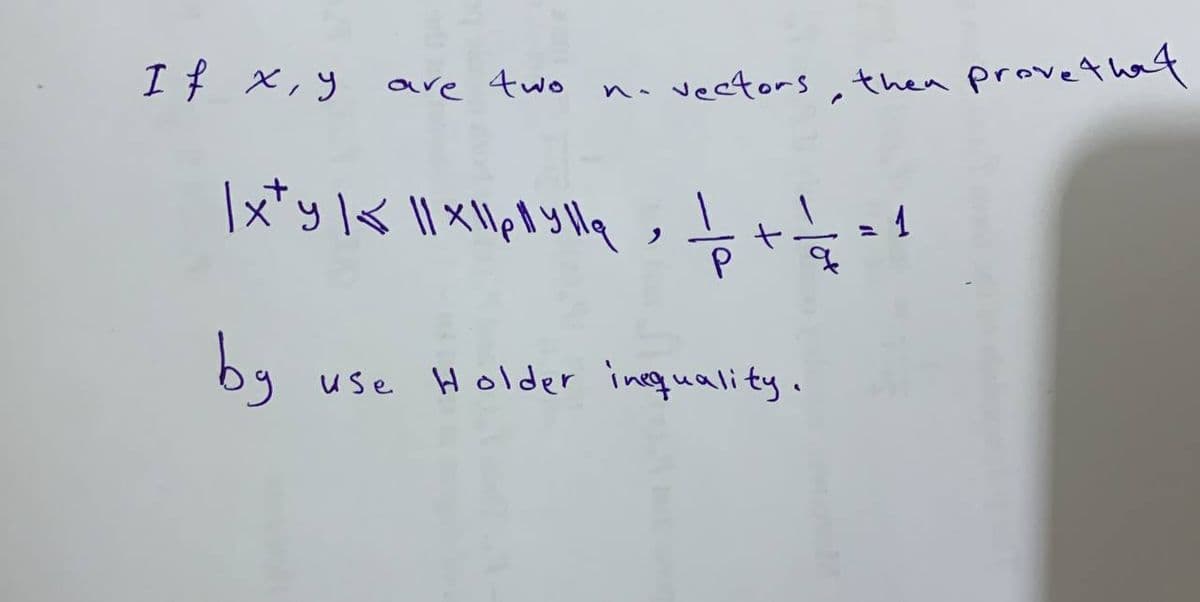 If x, y are two n- vectors, then prove that
|x⁺y| ≤ ||x||p ||y||q , 1/p + 1/q = 1
by use Holder inequality.